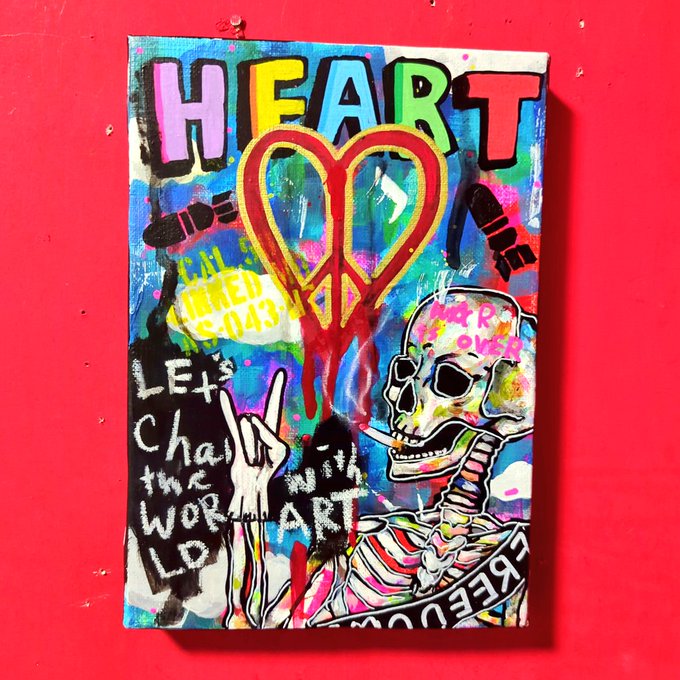 HEART
CAL
INKED
AS-043
WAR
IS OVER
LEt's
Cha
the
WOR
LD
with
ART
FREEDO